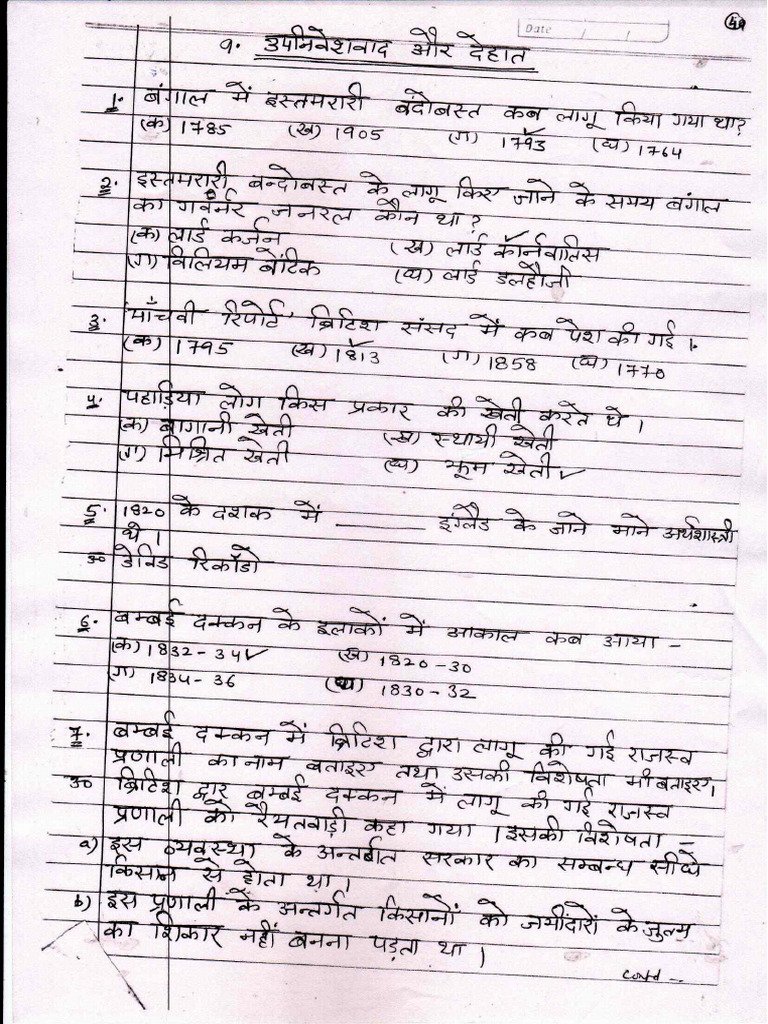 49
Date
९. उपनिवेशवाद और देहात
1. बंगाल में इस्तमरारी बंदोबस्त कब लागू किया गया था?
(क) 1785 (ख) 1905 (ग) 1793 ✓ (घ) 1764
2. इस्तमरारी बन्दोबस्त के लागू किए जाने के समय बंगाल
का गर्वनर जनरल कौन था?
(क) लार्ड कर्जन (ख) लार्ड कॉर्नवालिस ✓
(ग) विलियम बेंटिक (घ) लार्ड डलहौजी
3. 'पाँचवी रिपोर्ट' ब्रिटिश संसद में कब पेश की गई।
(क) 1795 (ख) 1813 ✓ (ग) 1858 (घ) 1770
4. पहाड़िया लोग किस प्रकार की खेती करते थे।
(क) बागानी खेती (ख) स्थायी खेती
(ग) मिश्रित खेती (घ) झूम खेती ✓
5. 1820 के दशक में ________ इंग्लैड के जाने माने अर्थशास्त्री
थे।
उ० डेविड रिकॉर्डो
6. बम्बई दक्कन के इलाकों में आकाल कब आया –
(क) 1832-34 ✓ (ख) 1820-30
(ग) 1834-36 (घ) 1830-32
7. बम्बई दक्कन में ब्रिटिश द्वारा लागू की गई राजस्व
प्रणाली का नाम बताइए तथा उसकी विशेषता भी बताइए।
उ० ब्रिटिश द्वारा बम्बई दक्कन में लागू की गई राजस्व
प्रणाली को रैयतवाड़ी कहा गया। इसकी विशेषता =
a) इस व्यवस्था के अन्तर्गत सरकार का सम्बन्ध सीधे
किसान से होता था।
b) इस प्रणाली के अन्तर्गत किसानों को जमींदारों के जुल्म
का शिकार नहीं बनना पड़ता था।
contd --